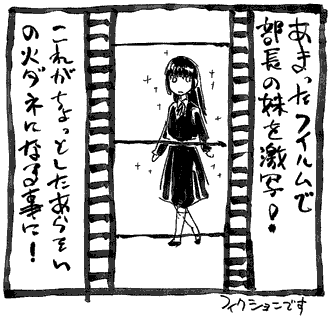 あまったフイルムで
部長の妹を激写!
これがちょっとしたあらそい
の火ダネになる事に!
フィクションです